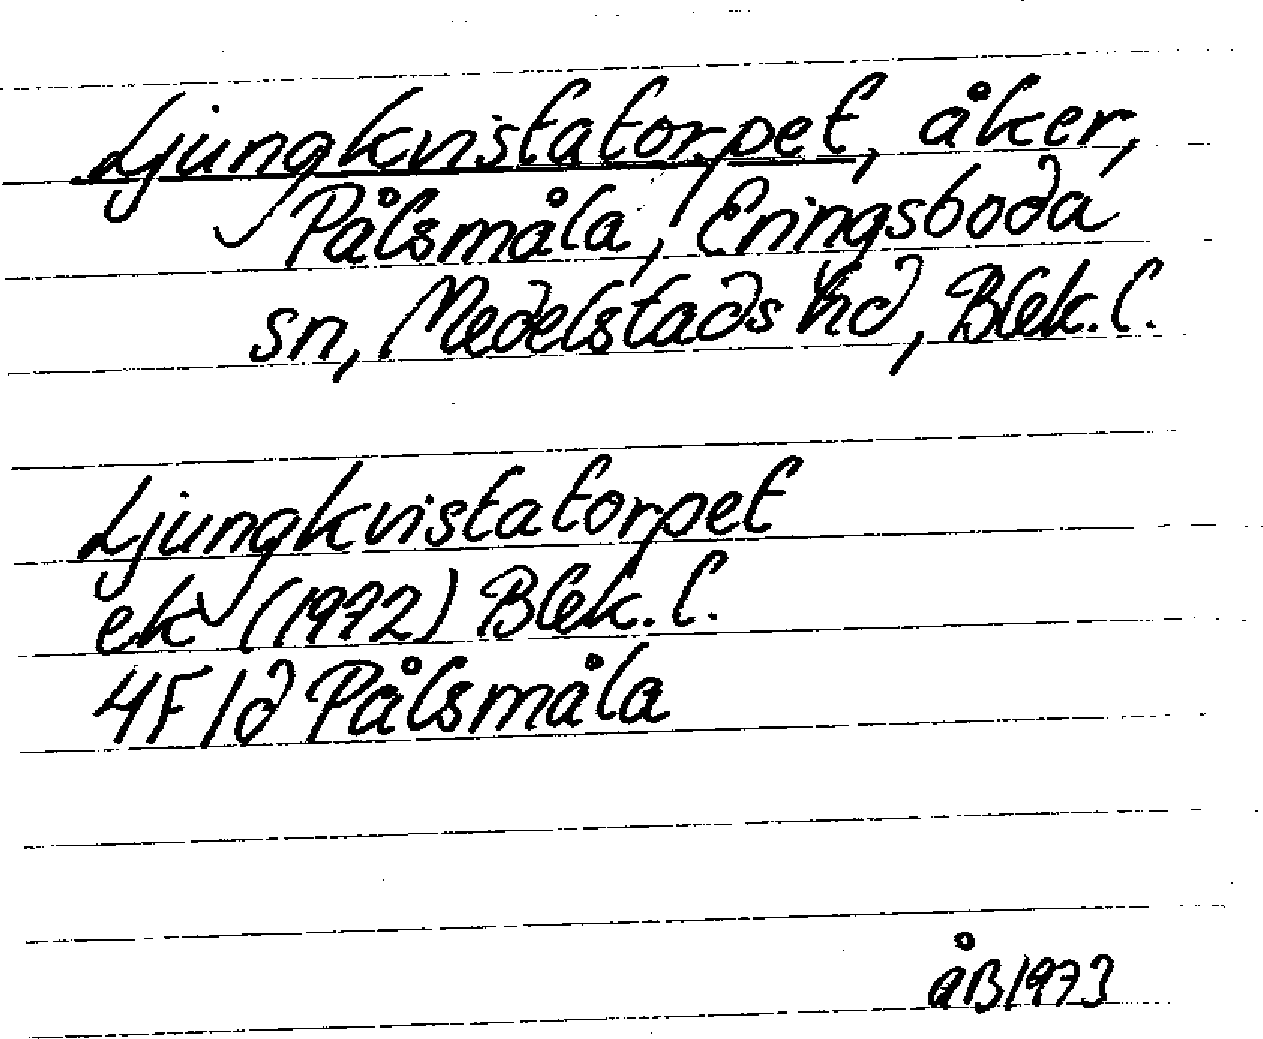 Ljungkvistatorpet, åker,
Pålsmåla, Eringsboda
sn, Medelstads hd, Blek. l.
Ljungkvistatorpet
ek (1972) Blek. l.
4F1d Pålsmåla
åB1973